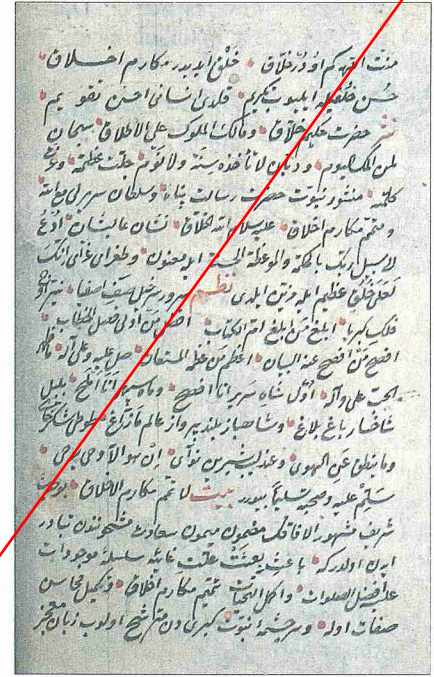 منت اللهه كم اودر خلاق • خلق ايدر مكارم اخلاق •
حسن خلقيله ايليوب تكريم • قلدى انسانى احسن تقويم •
نثر حضرت حكيم خلاق • و مالك الملوك على الاطلاق • سبحان
لمن الملك اليوم • و ديان لا تأخذه سنة ولا نوم • جلت عظمته • وعزت
كلمته • منشور نبوت حضرت رسالت پناه • و سلطان سرير لى مع الله
و متمم مكارم اخلاق • عليه سلام الله الخلاق • نشان عاليشان ادع
الى سبيل ربك بالحكمة والموعظة الحسنة ايله معنون • و طغراى غراى انك
لعلى خلق عظيم ايله مزين ايلدى نظم سرور سرخيل صف اصفا • نير اوج
فلك كبريا • ابلغ من ابلغ ام الكتاب • افضل من اوتى فصل الخطاب •
افصح من افصح عنه البيان • اعظم من عظمه المستعان • صل عليه وعلى آله ما ظهر
الحق على وآله • اول شاه سرير انا افصح • و ماه سپهر انا املح • بلبل
شاخسار باغ بلاغ • و شاهباز بلند پرواز عالم ما زاغ • طوطى شكرخاى
و ما ينطق عن الهوى • و عندليب شيرين نواى • ان هو الا وحى يوحى •
سلم عليه وصحبه تسليما بيورر بيت لاتمم مكارم الاخلاق • بو حديث
شريف مشهور الآفاقك مضمون ميمون سعادت مشحونندن متبادر
اولدركه • باعث بعثت علت غائيه سلسله موجودات
عليه افضل الصلوات • و اكمل التحيات • تتميم مكارم اخلاق • و تكميل محاسن
صفات اوله • و سرچشمه نبوت كبرى دن مترشح اولوب زبان معجز